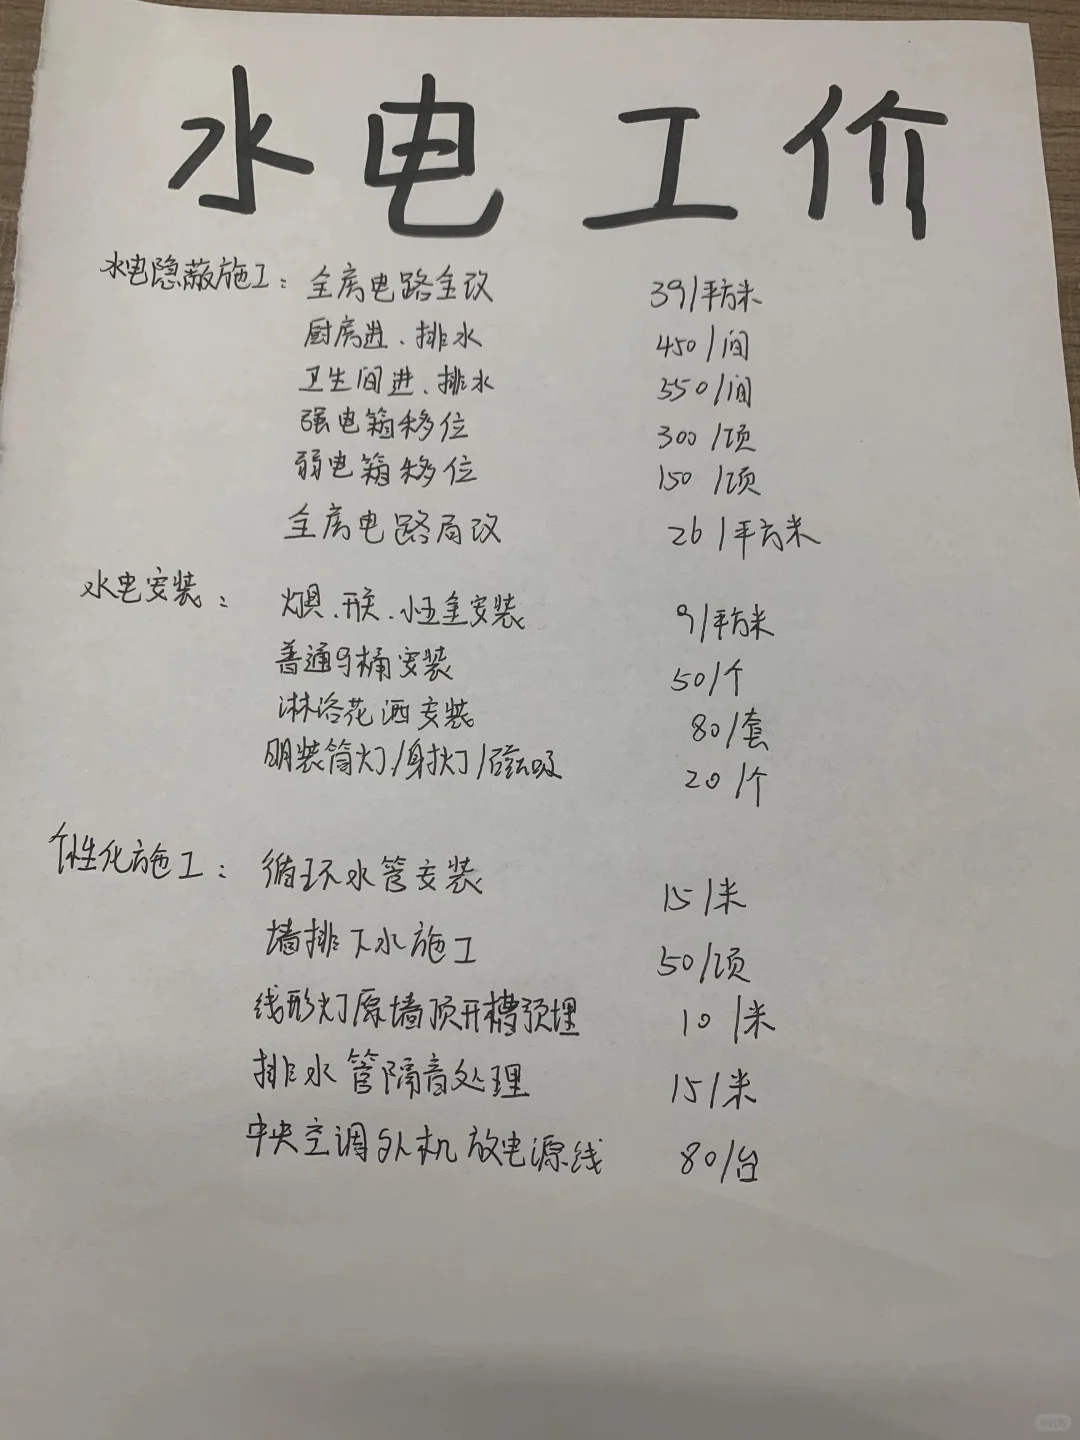 水电工价
水电隐蔽施工：全房电路全改 39/平方米
厨房进、排水 450/间
卫生间进、排水 550/间
强电箱移位 300/项
弱电箱移位 150/项
全房电路局改 26/平方米
水电安装：灯具、开关、小五金安装 9/平方米
普通马桶安装 50/个
淋浴花洒安装 80/套
明装筒灯/射灯/磁吸 20/个
个性化施工：循环水管安装 15/米
墙排下水施工 50/项
线形灯原墙顶开槽预埋 10/米
排水管隔音处理 15/米
中央空调外机放电源线 80/台